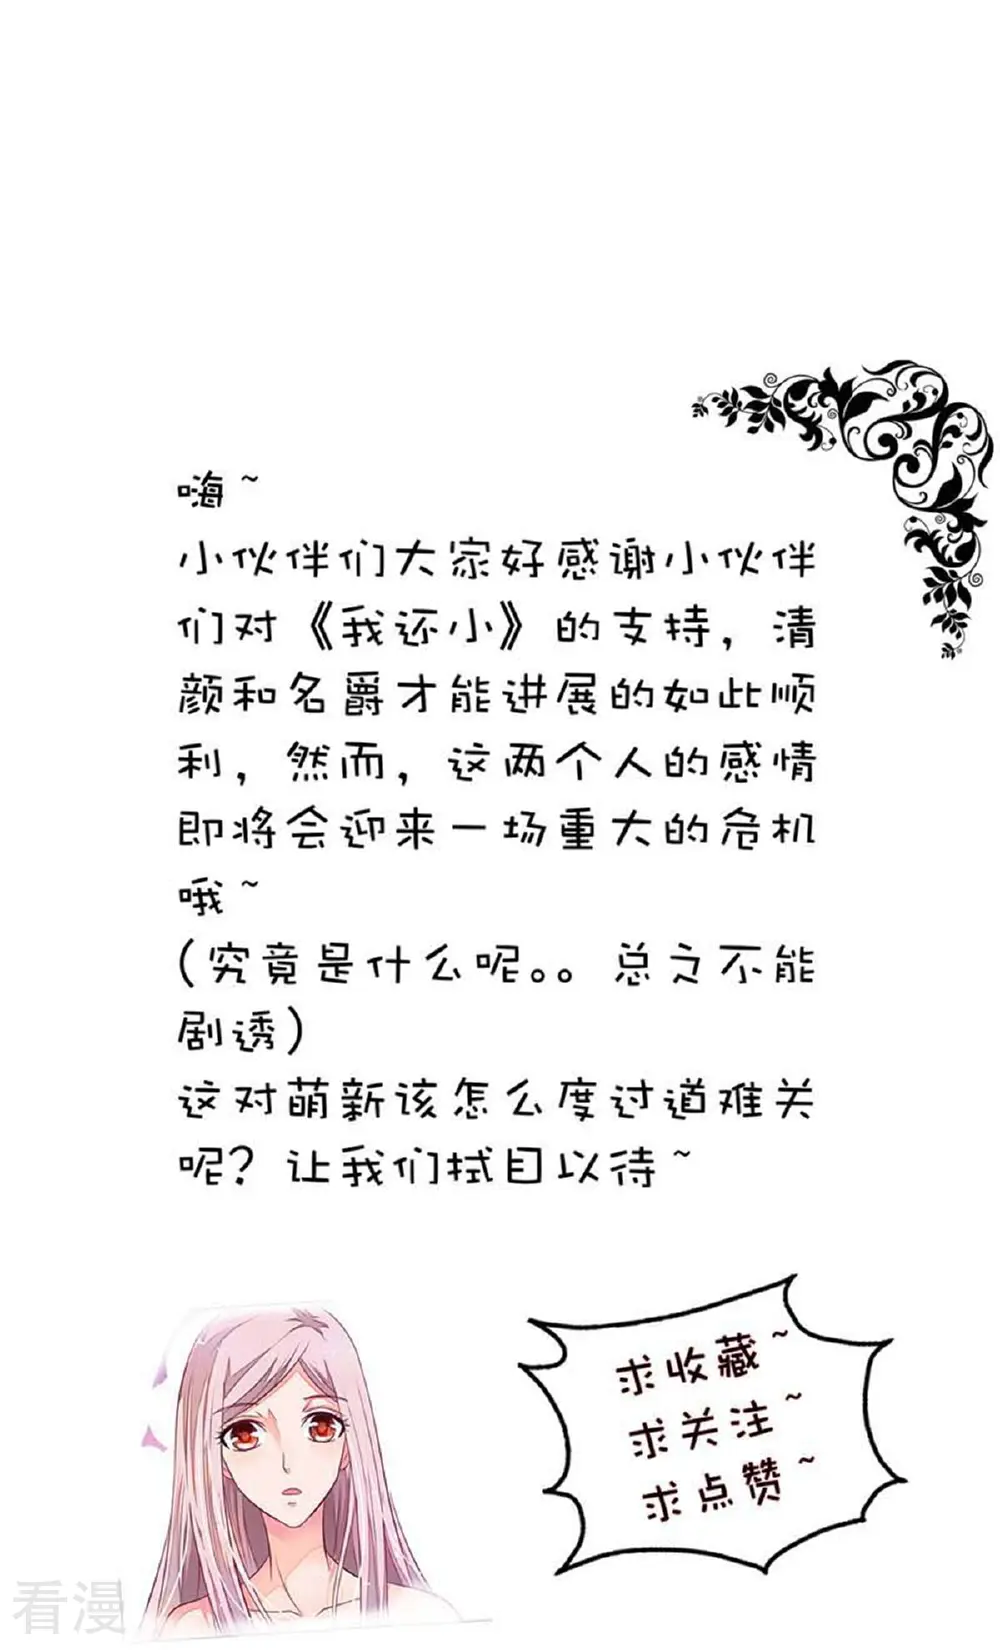 嗨~
小伙伴们大家好感谢小伙伴
们对《我还小》的支持，清
颜和名爵才能进展的如此顺
利，然而，这两个人的感情
即将会迎来一场重大的危机
哦~
(究竟是什么呢。。总之不能
剧透)
这对萌新该怎么度过道难关
呢？让我们拭目以待~
求收藏~
求关注~
求点赞~
看漫